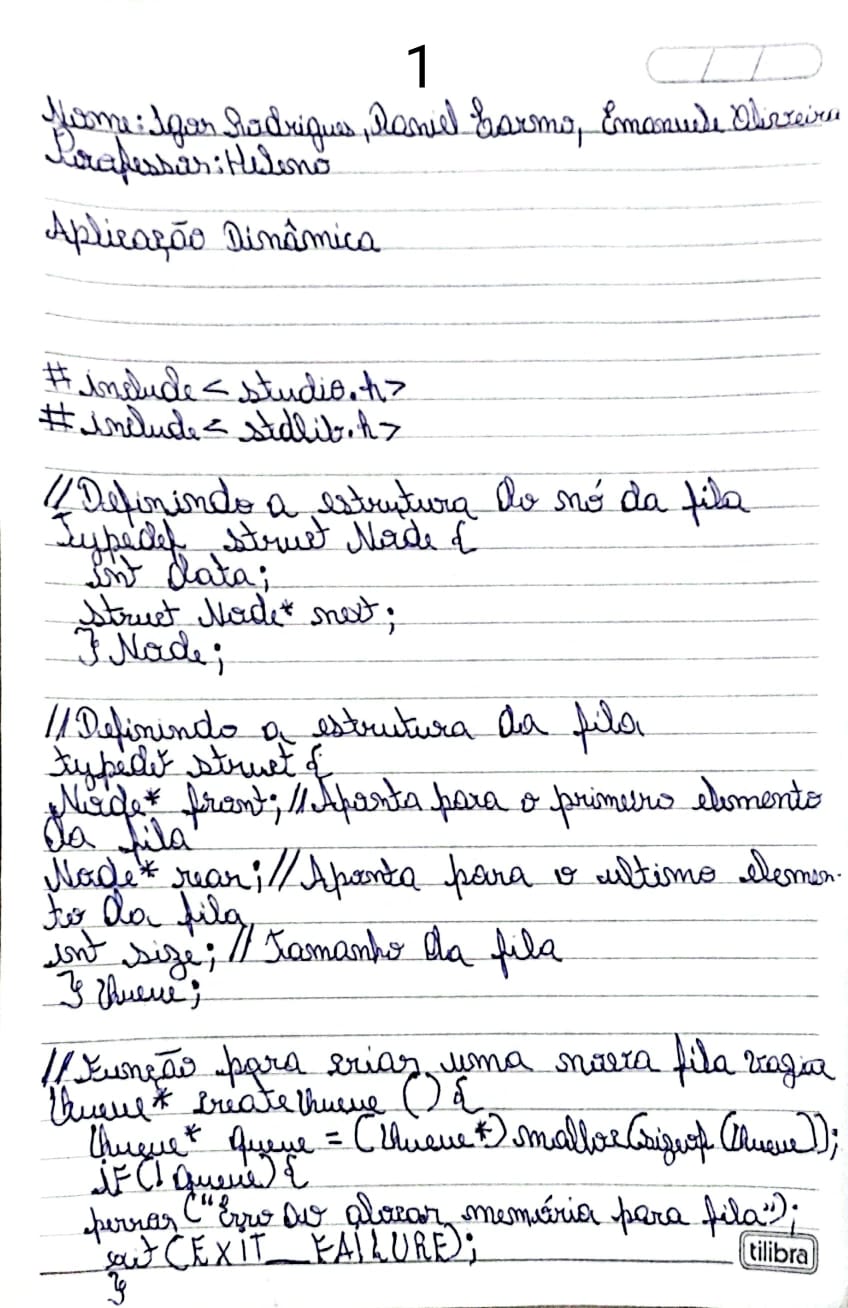 1
Nome: Igor Rodrigues, Daniel Carmo, Emanuele Oliveira
Professor: Heleno
Aplicação Dinâmica
# include < studio.h>
# include < stdlib.h>
// Definindo a estrutura do nó da fila
Typedef struct Node {
int data;
struct Node* next;
} Node;
// Definindo a estrutura da fila
typedef struct {
Node* front; // Aponta para o primeiro elemento
da fila
Node* rear; // Aponta para o ultimo elemen-
to da fila
int size; // Tamanho da fila
} Queue;
// Função para criar uma nova fila vazia
Queue* createQueue () {
Queue* queue = (Queue*) malloc(sizeof (Queue));
if (! queue) {
perror ("Erro ao alocar memória para fila");
exit (EXIT_FAILURE);
}
tilibra